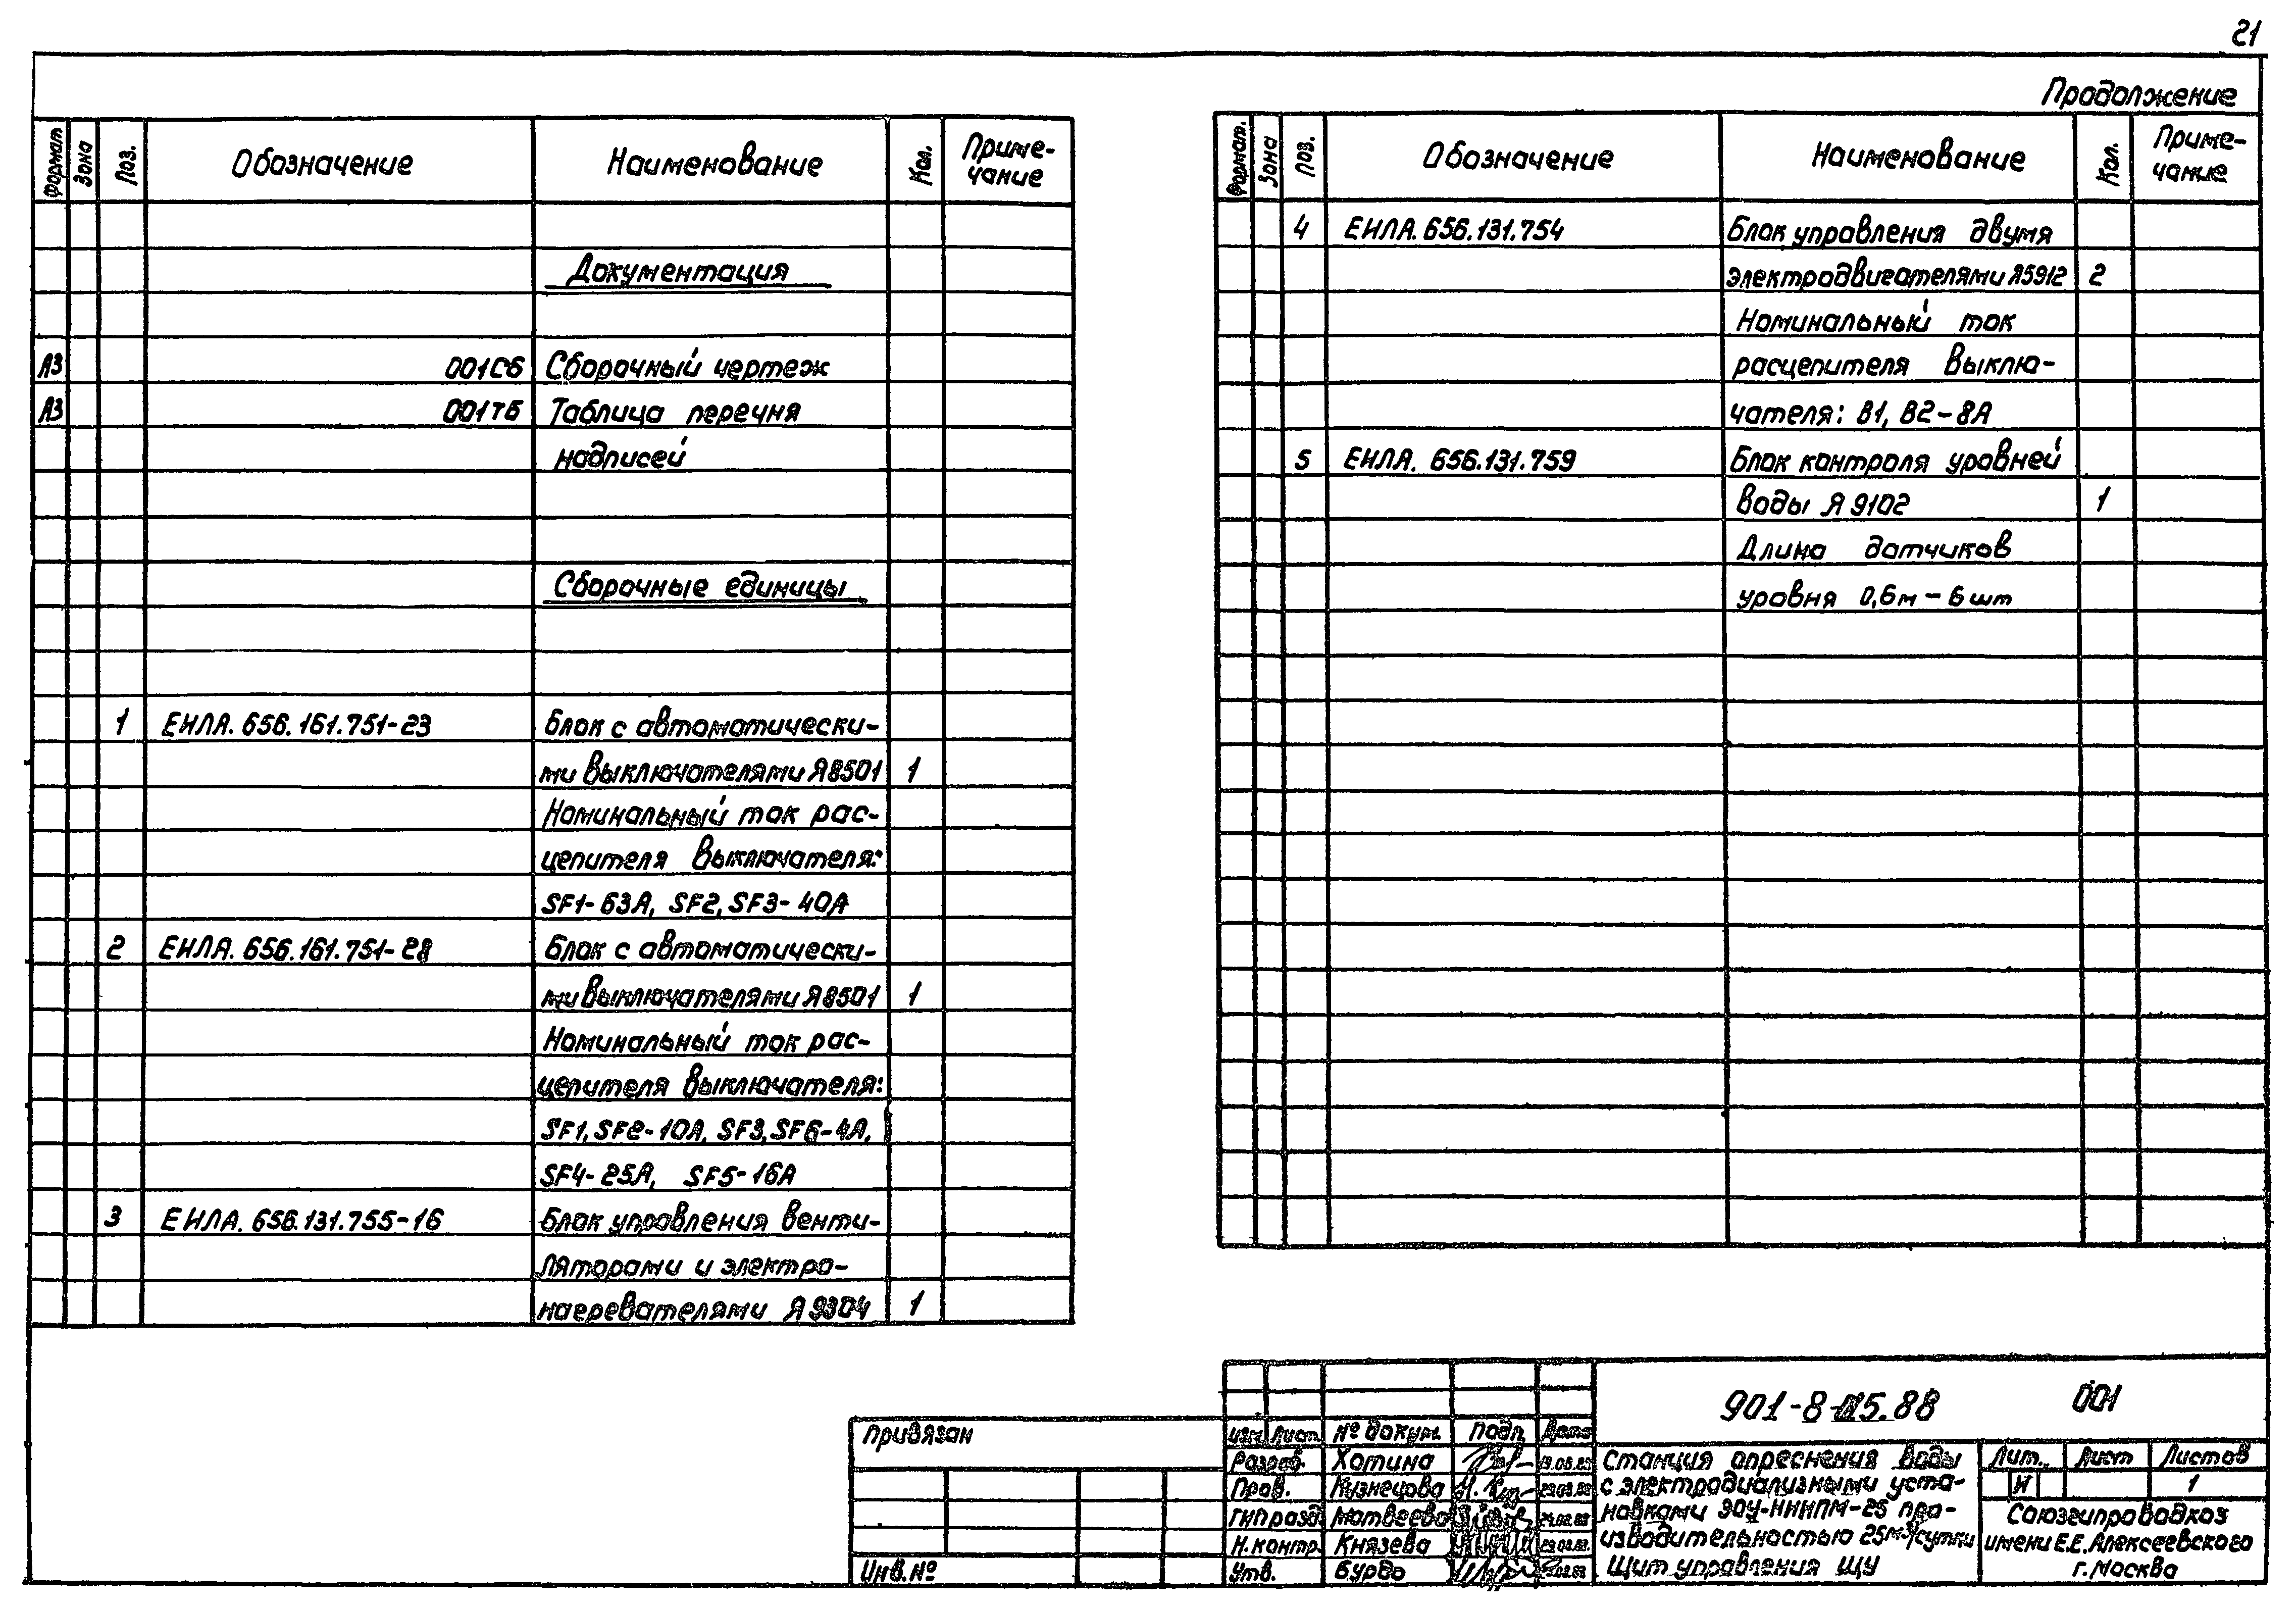 21
Продолжение
Формат Зона Поз. Обозначение Наименование Кол. Приме-
чание
Документация
А3 001СБ Сборочный чертеж
А3 001ТБ Таблица перечня
надписей
Сборочные единицы
1 ЕИЛА.656.161.751-23 Блок с автоматически-
ми выключателями Я8501 1
Номинальный ток рас-
цепителя выключателя:
SF1-63А, SF2, SF3-40А
2 ЕИЛА.656.161.751-28 Блок с автоматически-
ми выключателями Я8501 1
Номинальный ток рас-
цепителя выключателя:
SF1, SF2-10А, SF3, SF6-4А,
SF4-25А, SF5-16А
3 ЕИЛА.656.131.755-16 Блок управления венти-
ляторами и электро-
нагревателями Я9304 1
Формат. Зона Поз. Обозначение Наименование Кол. Приме-
чание
4 ЕИЛА.656.131.754 Блок управления двумя
электродвигателями Я5912 2
Номинальный ток
расцепителя выклю-
чателя: В1, В2-8А
5 ЕИЛА.656.131.759 Блок контроля уровней
воды Я9102 1
Длина датчиков
уровня 0,6м-6шт
Привязан
Инв.№
901-8- 5.88 001
Изм Лист № докум. Подп. Дата
Разраб. Хотина
Пров. Кузнецова
ГИП разд. Матвеева
Н.контр. Князева
Утв. Бурдо
Станция опреснения воды
с электродиализными уста-
новками ЭОУ-НИИПМ-25 про-
изводительностью 25м³/сутки
Щит управления ЩУ
Лит. Лист Листов
И 1
Союзгипроводхоз
имени Е.Е.Алексеевского
г.Москва